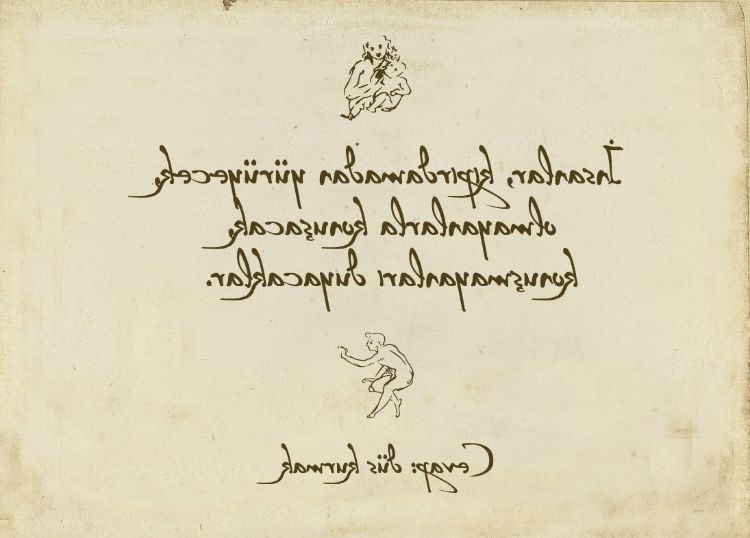 İnsanlar, kıpırdamadan yürüyecek,
olmayanlarla konuşacak,
konuşmayanları duyacaklar.
Cevap: düş kurmak